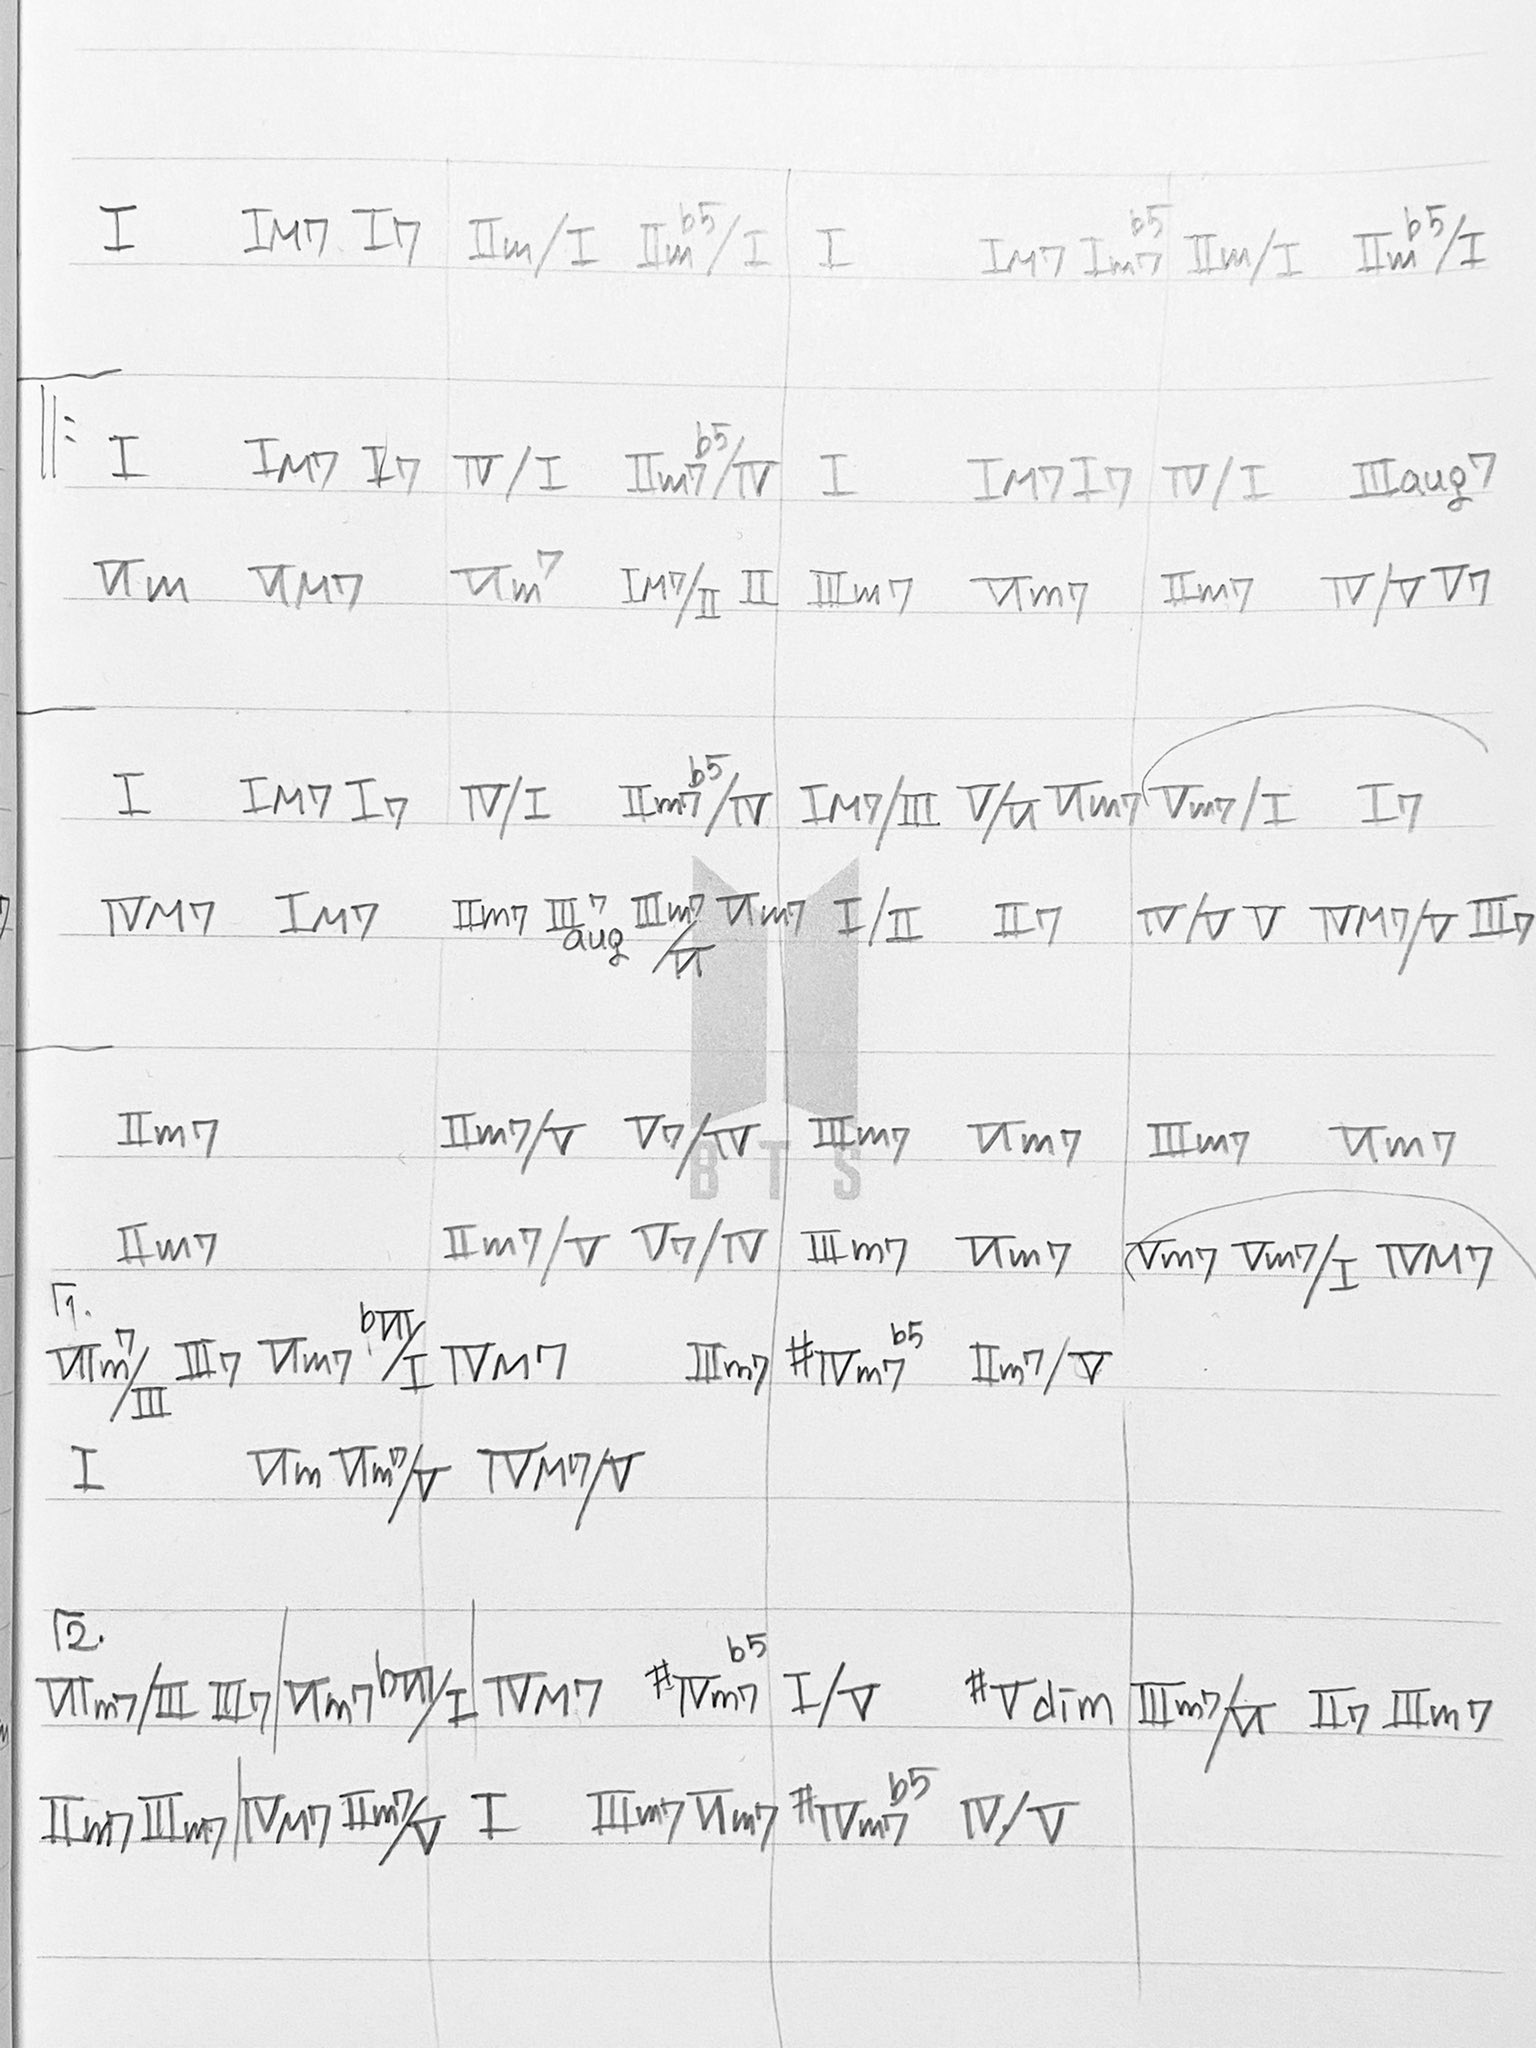 I IM7 I7 IIm/I IIm♭5/I I IM7 Im7♭5 IIm/I IIm♭5/I
‖: I IM7 I7 IV/I IIm7♭5/IV I IM7 I7 IV/I IIIaug7
VIm VIM7 VIm7 IM7/II II IIIm7 VIm7 IIm7 IV/V V7
I IM7 I7 IV/I IIm7♭5/IV IM7/III V/VI VIm7 (Vm7/I I7
IVM7 IM7 IIm7 III7aug IIIm7/VI VIm7 I/II II7 IV/V V IVM7/V III7
IIm7 IIm7/V V7/IV IIIm7 VIm7 IIIm7 VIm7
BTS
IIm7 IIm7/V V7/IV IIIm7 VIm7 (Vm7 Vm7/I IVM7
1.
VIIm7/III III7 VIm7 ♭VII/I IVM7 IIIm7 #IVm7♭5 IIm7/V
I VIm VIm7/V IVM7/V
2.
VIIm7/III III7 | VIm7 ♭VII/I | IVM7 #IVm7♭5 I/V #Vdim IIIm7/VI II7 IIIm7
IIm7 IIIm7 | IVM7 IIm7/V I IIIm7 VIm7 #IVm7♭5 IV/V